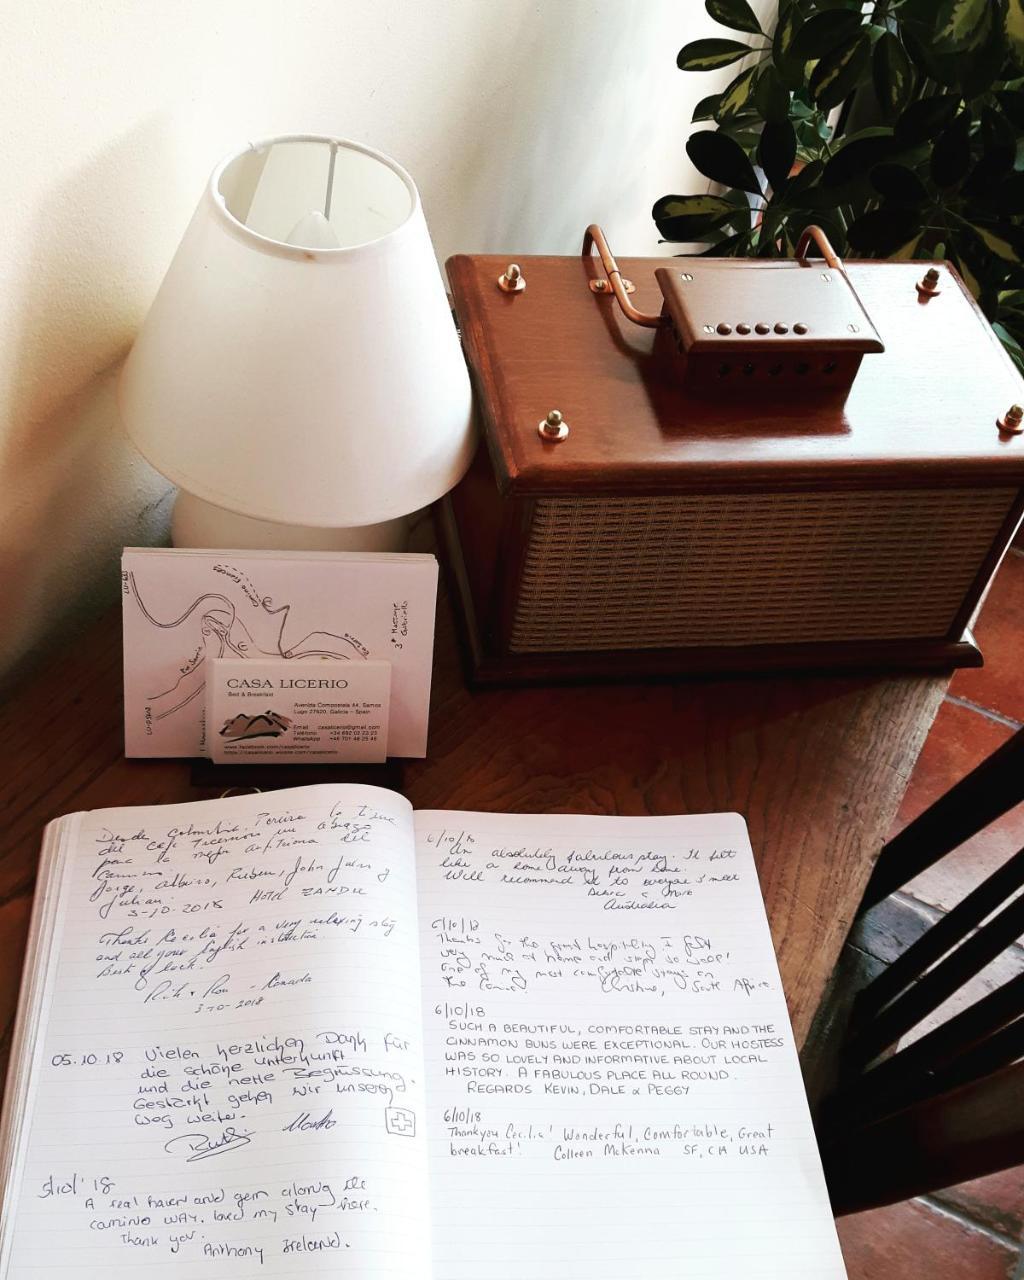 LU-633
Camino Francés
Río Sarria
CASA LICERIO
Bed & Breakfast
Avenida Compostela 44, Samos
Lugo 27620, Galicia – Spain
Email casalicerio@gmail.com
Teléfono
WhatsApp
www.facebook.com/casalicerio
Desde Colombia. Pereira
Jorge, Albeiro, Rubén, John Jairo y
Julian.
3-10-2018 Hotel
Thanks Cecilia for a very relaxing stay
and all your English instruction.
Best of luck.
Canada
3-10-2018
05.10.18 Vielen herzlichen Dank für
die schöne Unterkunft
und die nette Begrüssung.
Gestärkt gehen wir unseren
Weg weiter.
Ruth
5/10/'18
A real haven and gem along the
camino way. Love my stay here.
Thank you.
Anthony Ireland.
6/10/18
An absolutely fabulous stay. It felt
like a home away from home.
Will recommend it to everyone I meet
Australia
6/10/18
Thanks for the great hospitality. I felt
very much at home and slept so well!
One of my most comfortable stays on
the Camino. Christine, South Africa.
6/10/18
SUCH A BEAUTIFUL, COMFORTABLE STAY AND THE
CINNAMON BUNS WERE EXCEPTIONAL. OUR HOSTESS
WAS SO LOVELY AND INFORMATIVE ABOUT LOCAL
HISTORY. A FABULOUS PLACE ALL ROUND.
REGARDS KEVIN, DALE & PEGGY
6/10/18
Thankyou Cecilia! Wonderful, Comfortable, Great
breakfast! Colleen McKenna SF, CA USA